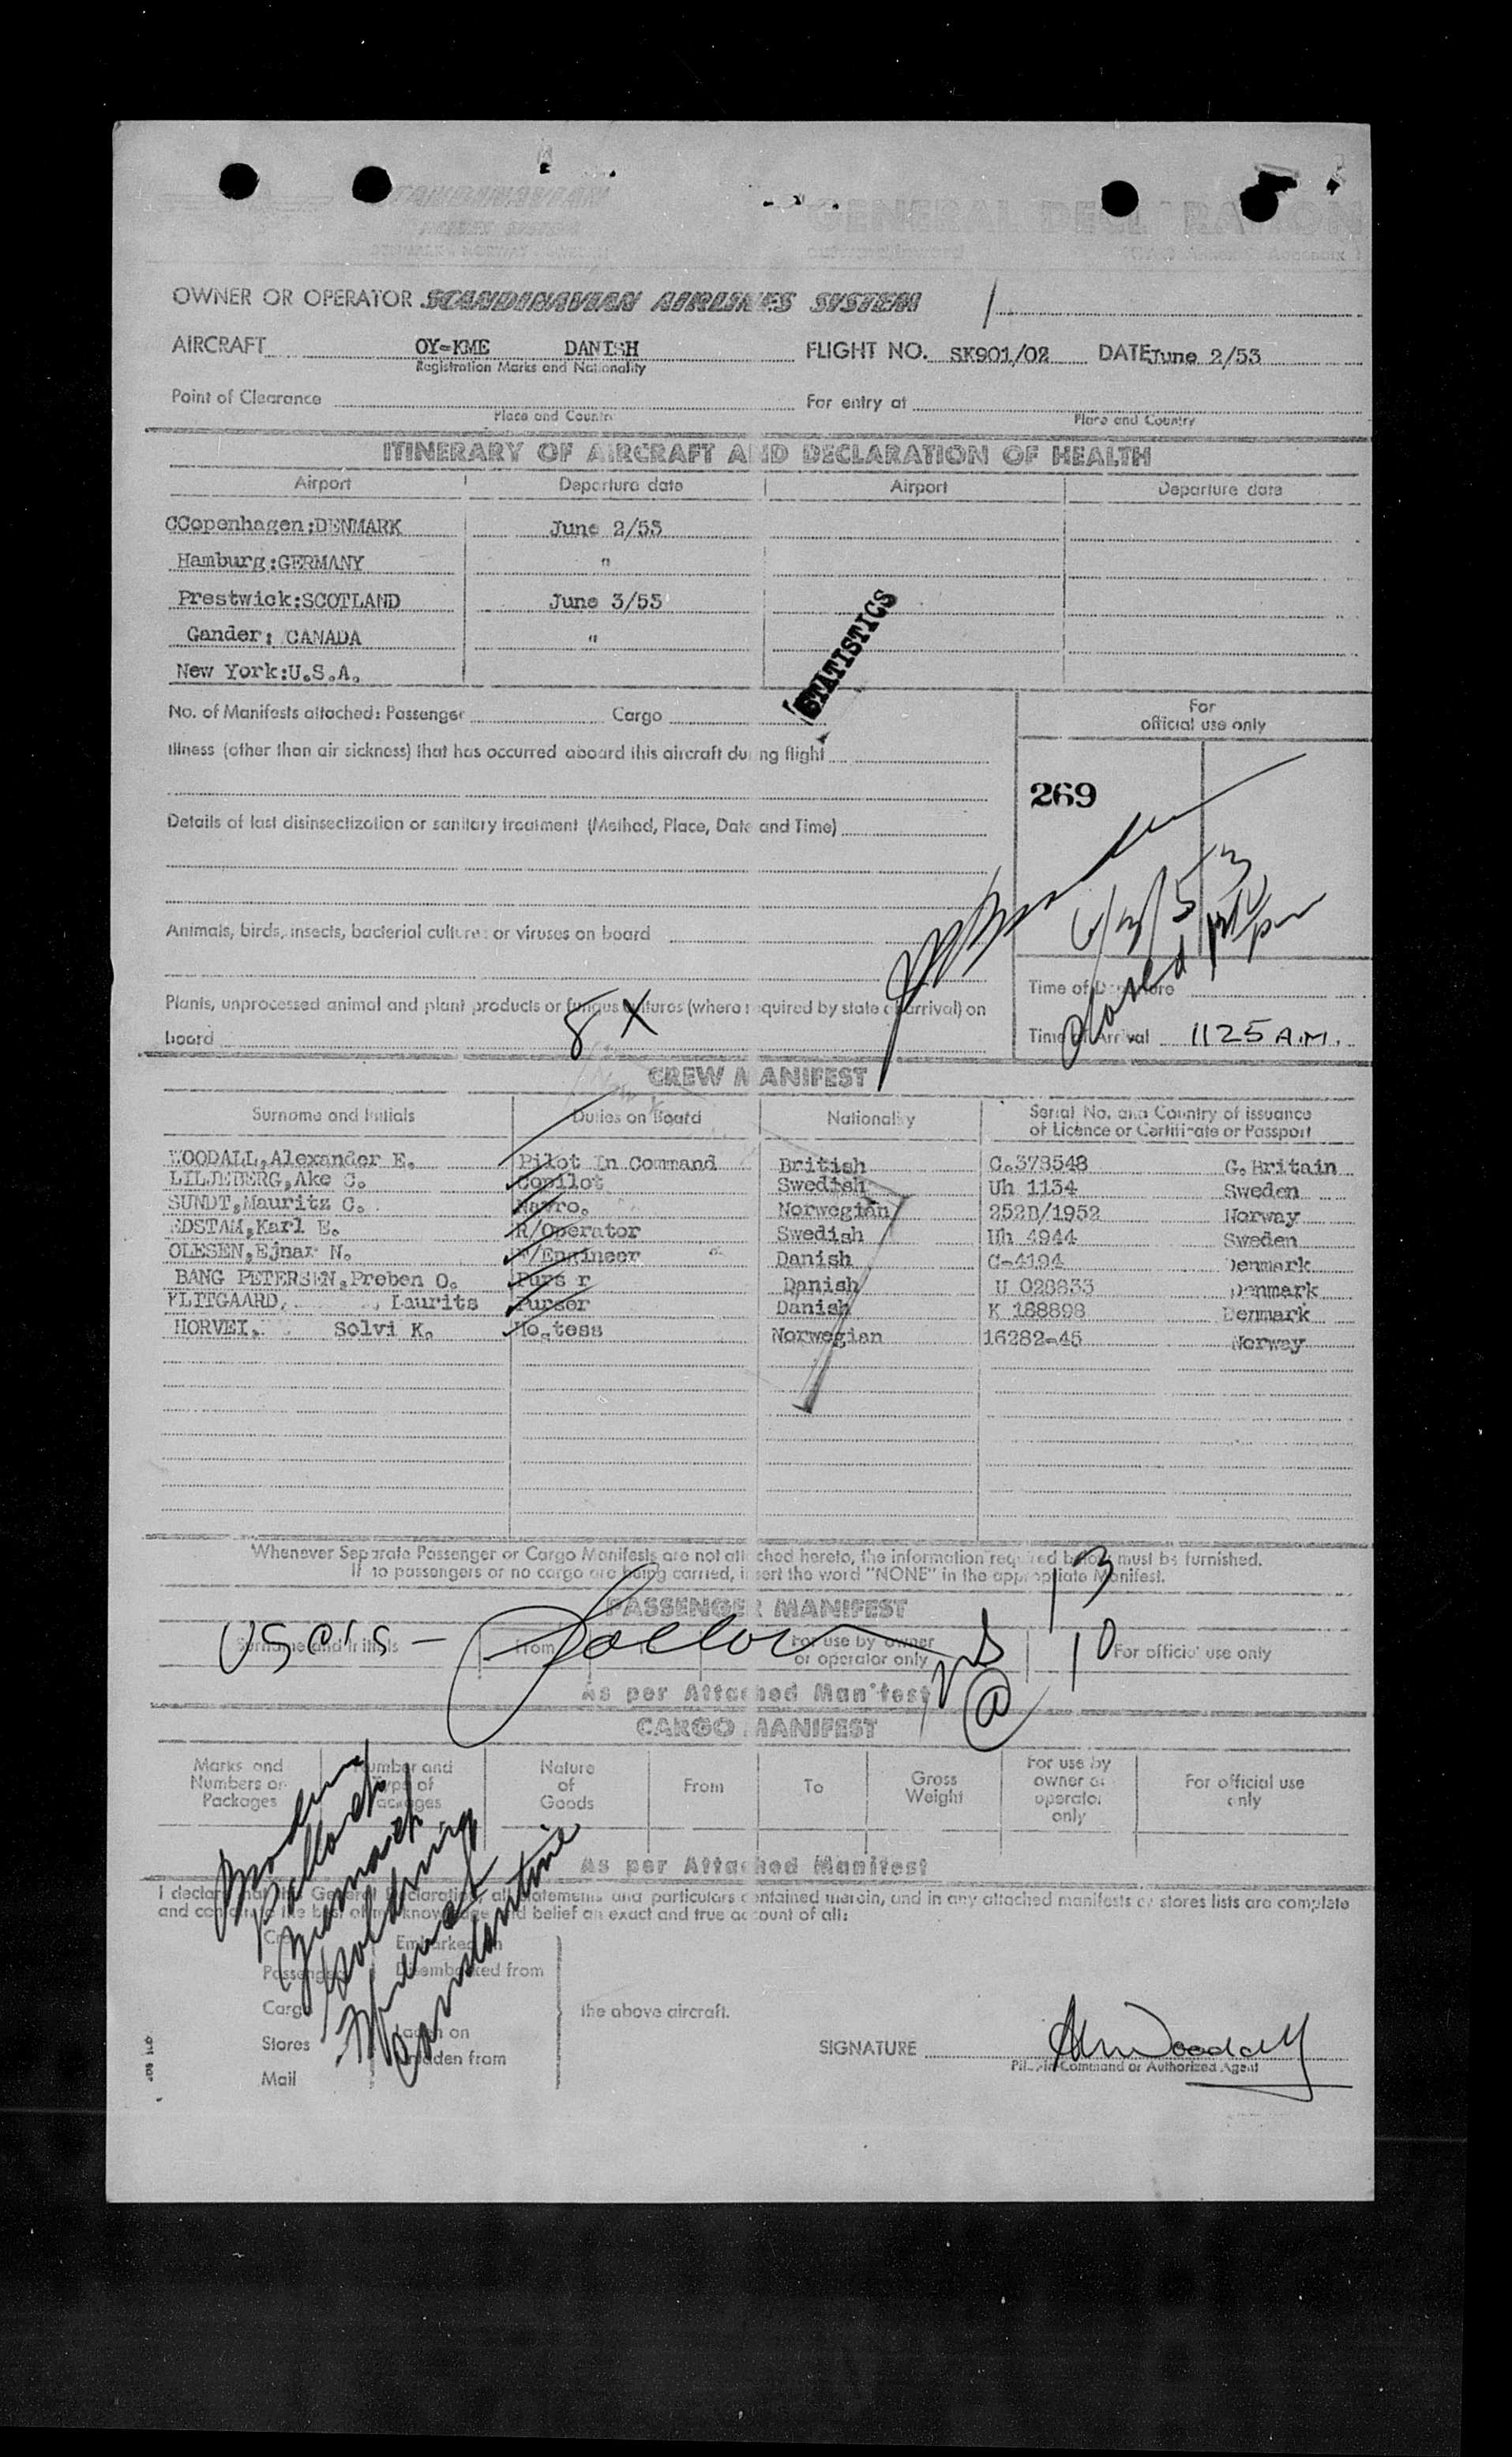 SCANDINAVIAN
GENERAL DECLARATION
OWNER OR OPERATOR SCANDINAVIAN AIRLINES SYSTEM
AIRCRAFT OY-KME DANISH FLIGHT NO. SK901/02 DATE June 2/53
Registration Marks and Nationality
Point of Clearance For entry at
Place and Country Place and Country
ITINERARY OF AIRCRAFT AND DECLARATION OF HEALTH
Airport Departure date Airport Departure date
CCopenhagen:DENMARK June 2/53
Hamburg:GERMANY "
Prestwick:SCOTLAND June 3/53
Gander: CANADA "
New York:U.S.A.
STATISTICS
No. of Manifests attached: Passenger Cargo
For
official use only
Illness (other than air sickness) that has occurred aboard this aircraft during flight
269
Details of last disinsectization or sanitary treatment (Method, Place, Date and Time)
6/3/53
Animals, birds, insects, bacterial cultures or viruses on board
Time of Departure
Plants, unprocessed animal and plant products or fungus cultures (where required by state of arrival) on
board
8 X
Time of Arrival 1125 A.M.
CREW MANIFEST
Surname and Initials Duties on Board Nationality Serial No. and Country of issuance
of Licence or Certificate or Passport
WOODALL,Alexander E. Pilot In Command British C.378548 G.Britain
LILJEBERG,Ake C. Copilot Swedish Uh 1134 Sweden
SUNDT,Mauritz C. Navro. Norwegian 252D/1952 Norway
EDSTAM,Karl E. R/Operator Swedish Uh 4944 Sweden
OLESEN,Ejnar N. F/Engineer Danish C-4194 Denmark
BANG PETERSEN,Preben O. Purs r Danish U 028833 Denmark
FLITGAARD, Laurits Purser Danish K 188898 Denmark
HORVEI, Solvi K. Ho tess Norwegian 16282-45 Norway
Whenever Separate Passenger or Cargo Manifests are not attached hereto, the information required below must be furnished.
If no passengers or no cargo are being carried, insert the word "NONE" in the appropriate Manifest.
13
PASSENGER MANIFEST
Surname and Initials From To For use by owner
or operator only For official use only
10
As per Attached Manifest
CARGO MANIFEST
Marks and
Numbers on
Packages Number and
Type of
Packages Nature
of
Goods From To Gross
Weight For use by
owner or
operator
only For official use
only
As per Attached Manifest
I declare that this General Declaration, all statements and particulars contained therein, and in any attached manifests or stores lists are complete
and contain to the best of my knowledge and belief an exact and true account of all:
Crew Embarked on
Passengers Disembarked from
Cargo the above aircraft.
Stores Laden on
Unladen from
Mail
Constantine
SIGNATURE AlexWoodall
Pilot-in-Command or Authorized Agent